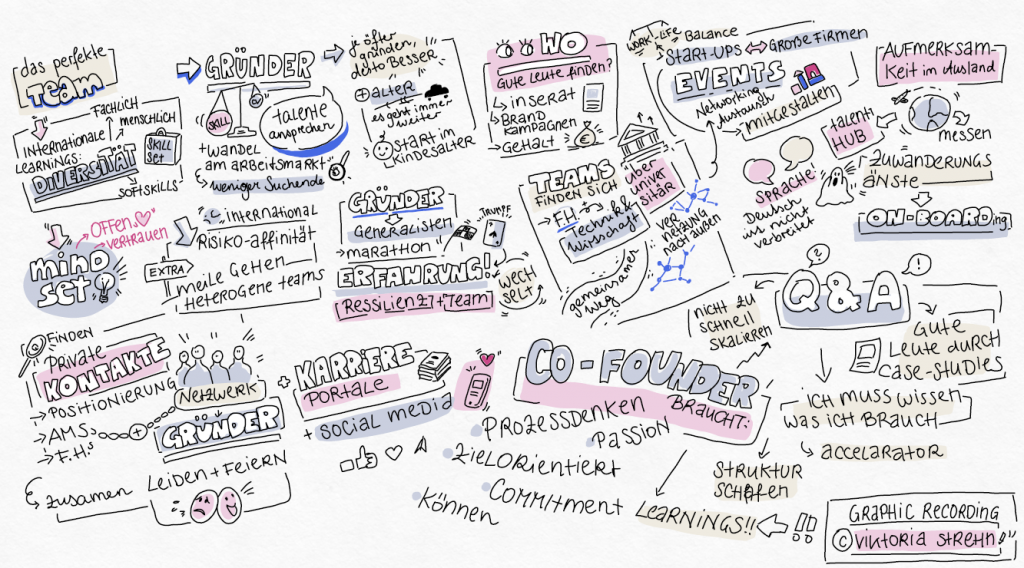 das perfekte
TEAM
FACHLICH
MENSCHLICH
INTERNATIONALE
LEARNINGS:
DIVERSITÄT
SKILL
SET
SOFTSKILLS
GRÜNDER
SKILL
talente
ansprechen
+WANDEL
AM ARBEITSMARKT
weniger Suchende
je öfter
gründen,
desto Besser
+ ALTER
es geht immer
weiter
START IM
KINDESALTER
WO
GUTE LEUTE FINDEN?
→ INSERAT
→ BRAND
KAMPAGNEN
→ GEHALT
WORK LIFE Balance
START-UPS ↔ GROßE FIRMEN
EVENTS
Networking
Austausch
mitGestalten
AUFMERKSAM-
KEIT im Ausland
messen
talent
HUB
ZUWANDERUNGS
ÄNSTE
SPRACHE
Deutsch
ist nicht
verbreitet
ON-BOARDing
mind
set
OFFEN
vertrauen
international
RISIKO-AFFINITÄT
EXTRA
MEILE GEHEN
HETEROGENE TEAMS
GRÜNDER
Generalisten
→ marathon
TRUMPF
ERFAHRUNG!
RESSILIENZ + TEAM
WECH
SELT
TEAMS
FINDEN SICH
→ FH
Technik &
Wirtschaft
über
univer
sitär
ver
netzung
nach außen
gemeinsamer
Weg
Q & A
?
!
nicht zu
schnell
skalieren
Gute
Leute durch
CASE-STUDIES
ICH MUSS WISSEN
WAS ICH BRAUCH
accelarator
FINDEN
Private
KONTAKTE
→ POSITIONIERUNG
→ AMS
→ F.H's
NETZWERK
GRÜNDER
zusamen
Leiden + Feiern
+ KARRIERE-
PORTALE
+ social media
CO-FOUNDER
BRAUCHT:
PROZESSDENKEN
PASSION
ZIELORIENTIERT
COMMITMENT
Können
STRUKTUR
SCHAFFEN
LEARNINGS!!
GRAPHIC RECORDING
© VIKTORIA STREHN